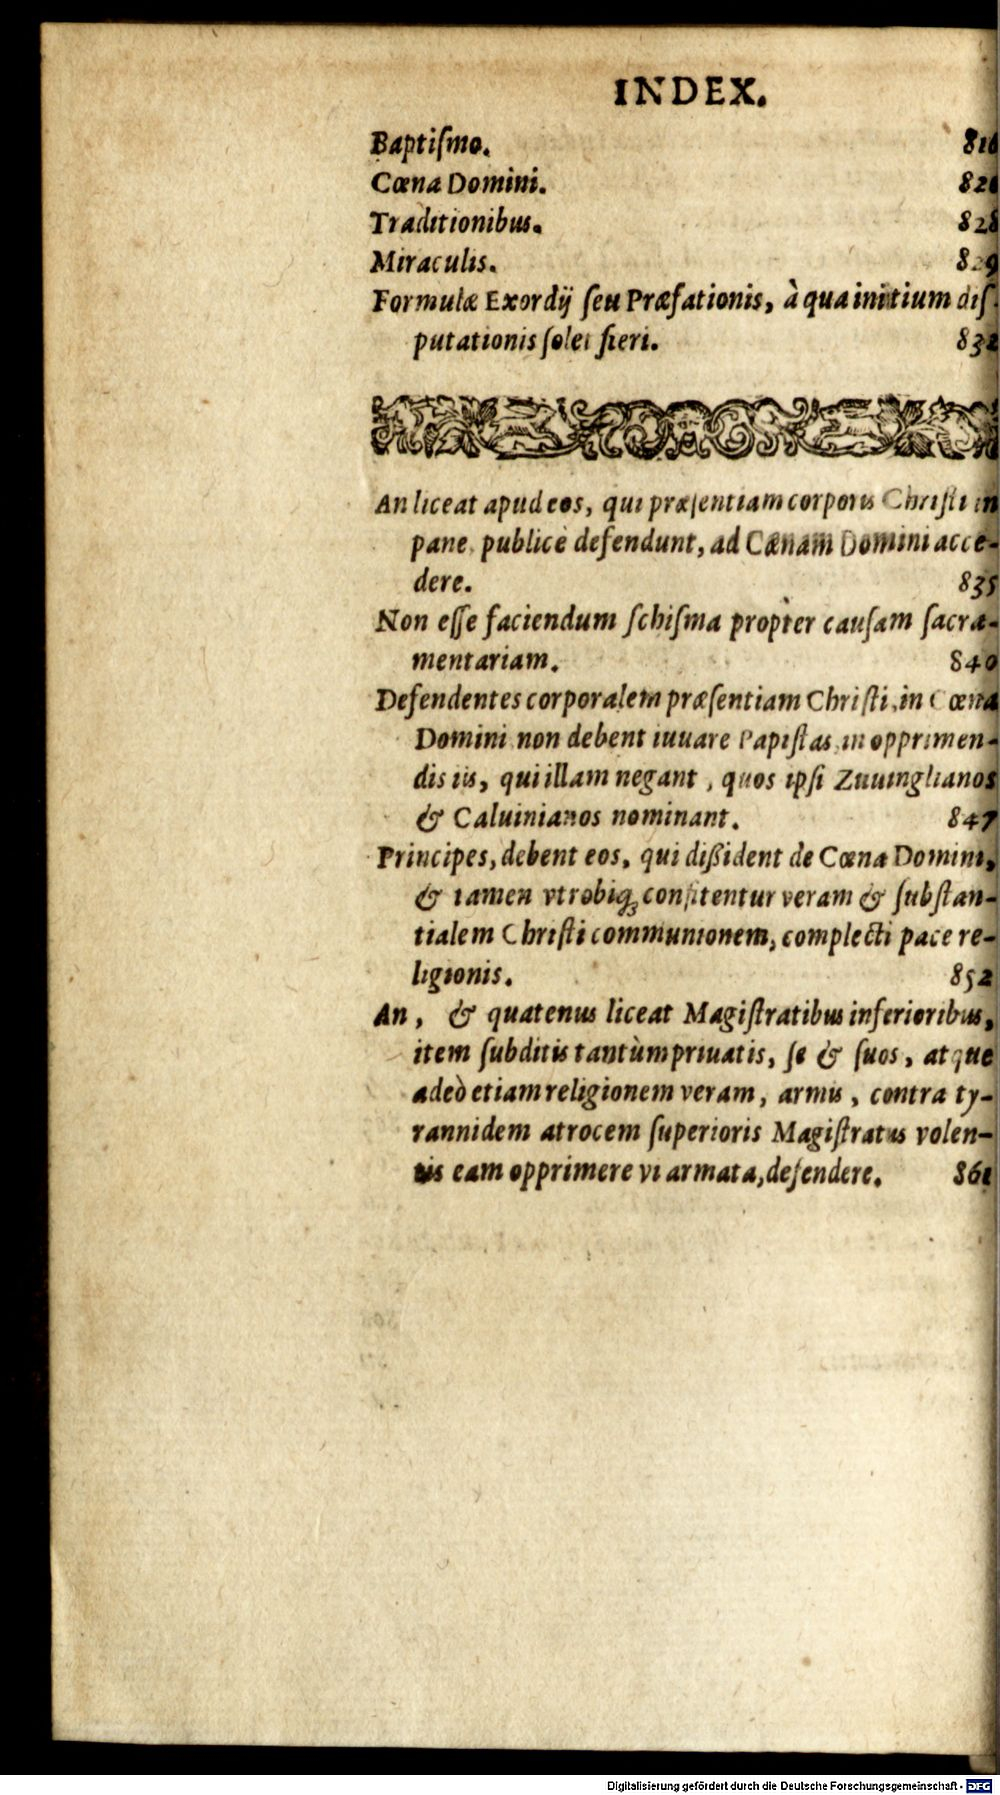 INDEX.
Baptiſmo. 816
Cœna Domini. 820
Traditionibus. 828
Miraculis. 829
Formulæ Exordij ſeu Præfationis, à qua initium diſ-
putationis ſolet fieri. 832
An liceat apud eos, qui præſentiam corporis Chriſti in
pane publicè defendunt, ad Cænam Domini acce-
dere. 835
Non eſſe faciendum ſchiſma propter cauſam ſacra-
mentariam. 840
Defendentes corporalem præſentiam Chriſti, in Cœna
Domini non debent iuuare Papiſtas in opprimen-
dis iis, qui illam negant, quos ipſi Zuuinglianos
& Caluinianos nominant. 847
Principes, debent eos, qui dißident de Cœna Domini,
& tamen vtrobiq; confitentur veram & ſubſtan-
tialem Chriſti communionem, complecti pace re-
ligionis. 852
An, & quatenus liceat Magiſtratibus inferioribus,
item ſubditis tantùm priuatis, ſe & ſuos, atque
adeò etiam religionem veram, armis, contra ty-
rannidem atrocem ſuperioris Magiſtratus volen-
tis eam opprimere vi armata, defendere. 861
Digitalisierung gefördert durch die Deutsche Forschungsgemeinschaft - DFG